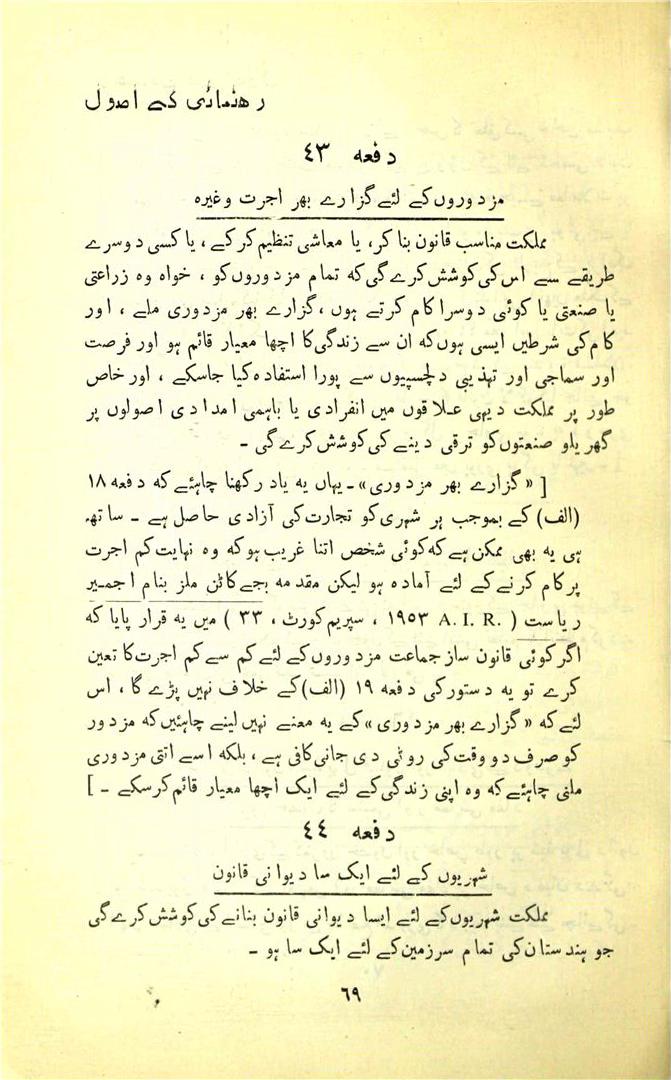 رهنمائی کے اصول
دفعه ٤٣
مزدوروں کے لئے گزارے بھر اجرت وغیره
مملکت مناسب قانون بنا کر، یا معاشی تنظیم کر کے، یا کسی دوسرے
طریقے سے اس کی کوشش کرے گی که تمام مزدوروں کو، خواه وه زراعتی
یا صنعتی یا کوئی دوسرا کام کرتے ہوں، گزارے بھر مزدوری ملے، اور
کام کی شرطیں ایسی ہوں که ان سے زندگی کا اچھا معیار قائم ہو اور فرصت
اور سماجی اور تہذیبی دلچسپیوں سے پورا استفاده کیا جاسکے، اور خاص
طور پر مملکت دیہی علاقوں میں انفرادی یا باہمی امدادی اصولوں پر
گھریلو صنعتوں کو ترقی دینے کی کوشش کرے گی ۔
[ «گزارے بھر مزدوری» ۔ یہاں یه یاد رکھنا چاہئے که دفعه ١٨
(الف) کے بموجب ہر شہری کو تجارت کی آزادی حاصل ہے ۔ ساتھ
ہی یه بھی ممکن ہے که کوئی شخص اتنا غریب ہو که وه نہایت کم اجرت
پر کام کرنے کے لئے آماده ہو لیکن مقدمه بجے کاٹن ملز بنام اجمیر
ریاست ( .A. I. R ١٩٥٣ ، سپریم کورٹ، ٣٣ ) میں یه قرار پایا که
اگر کوئی قانون ساز جماعت مزدوروں کے لئے کم سے کم اجرت کا تعین
کرے تو یه دستور کی دفعه ١٩ (الف) کے خلاف نہیں پڑے گا، اس
لئے که «گزارے بھر مزدوری» کے یه معنے نہیں لینے چاہئیں که مزدور
کو صرف دو وقت کی روٹی دی جانی کافی ہے، بلکه اسے اتنی مزدوری
ملنی چاہئے که وه اپنی زندگی کے لئے ایک اچھا معیار قائم کرسکے ۔ ]
دفعه ٤٤
شہریوں کے لئے ایک سا دیوانی قانون
مملکت شہریوں کے لئے ایسا دیوانی قانون بنانے کی کوشش کرے گی
جو ہندستان کی تمام سرزمین کے لئے ایک سا ہو ۔
٦٩